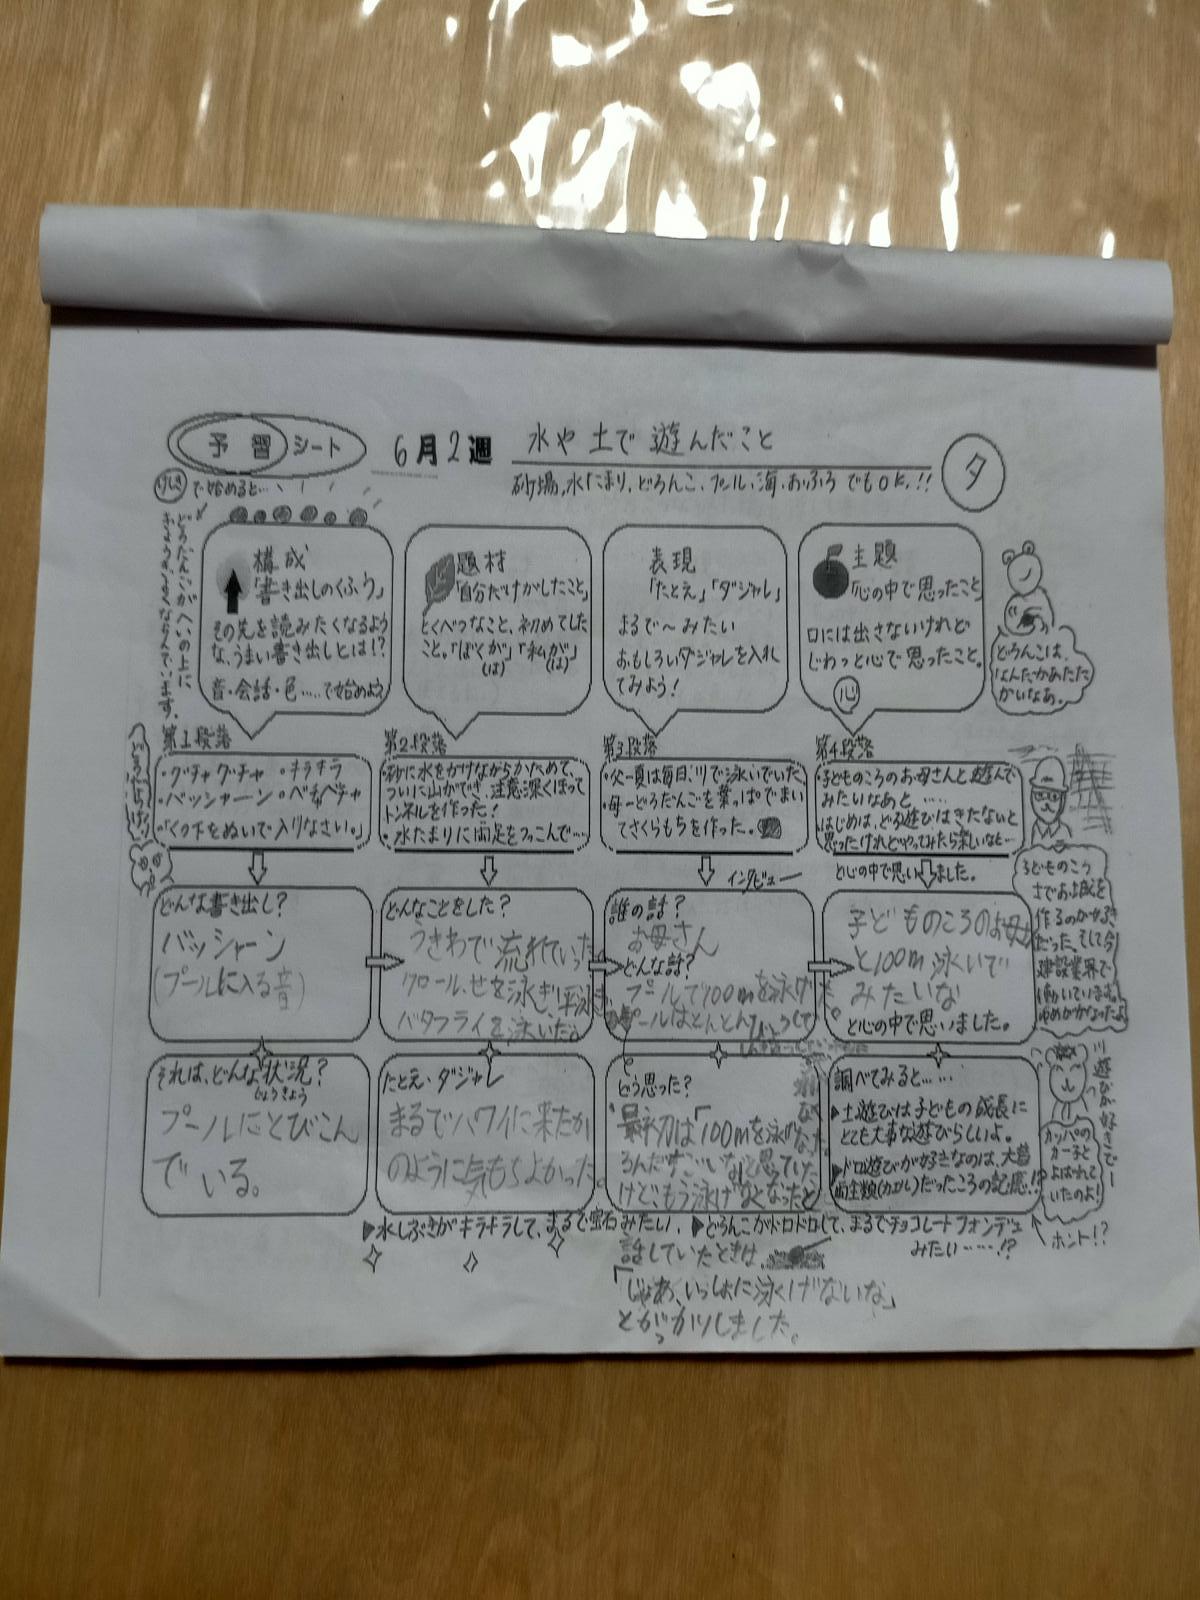 予習シート
6月2週
水や土で遊んだこと
砂場、水たまり、どろんこ、プール、海、おふろでもOK!!
タ
けしきで始めると…
どろだんごがへいの上に
ぎょうぎよくならんでいます。
構成
「書き出しのくふう」
その先を読みたくなるよう
な、うまい書き出しとは!?
音・会話・色……で始めよう
題材
「自分だけがしたこと」
とくべつなこと、初めてした
こと。「ぼくが」「私が」
(は) (は)
表現
「たとえ」「ダジャレ」
まるで〜みたい
おもしろいダジャレを入れ
てみよう!
主題
「心の中で思ったこと」
口には出さないけれど
じわっと心で思ったこと。
心
どろんこは、
なんだかあたた
かいなあ。
第1段落
・グチャグチャ ・キラキラ
・バッシャーン ・ベチャベチャ
・「くつ下をぬいで入りなさい。」
第2段落
・砂に水をかけながらかためて、
ついに山ができ、注意深くほって
トンネルを作った!
・水たまりに両足をつっこんで…
第3段落
・父−夏は毎日、川で泳いでいた。
・母−どろだんごを葉っぱでまい
てさくらもちを作った。
第4段落
・子どものころのお母さんと遊んで
みたいなあと……
はじめは、どろ遊びはきたないと
思ったけれどやってみたら楽しいなと…
と心の中で思いました。
どんな書き出し?
バッシャーン
(プールに入る音)
どんなことをした?
うきわで流れていった
クロール、せを泳ぎ、平泳ぎ
バタフライを泳いだ。
インタビュー
誰の話?
お母さん
どんな話?
プールで100mを泳げた
プールはとんとん
子どものころのお母さん
と100m泳いで
みたいな
と心の中で思いました。
子どものころ
すでお城を
作るのが好き
だった。そして今
建設業界で
働いています。
ゆめがかなったよ
それは、どんな状況?
じょうきょう
プールにとびこん
でいる。
たとえ・ダジャレ
まるでハワイに来たか
のように気もちよかった。
どう思った?
最初は「100mを泳げ
るんだすごいな」と思っていた
けど、もう泳げなくなったと
話していたときは、
「じゃあ、いっしょに泳くげないな」
とがっかりしました。
調べてみると……
▶土遊びは子どもの成長に
とても大事な遊びらしいよ。
▶ドロ遊びが好きなのは、大昔
だったころの記憶!?
ホント!?
川遊びが好きで−
カッパの
カー子と
よばれて
いたのよ!
▶水しぶきがキラキラして、まるで宝石みたい。
▶どろんこがドロドロして、まるでチョコレートフォンデュ
みたい……!?